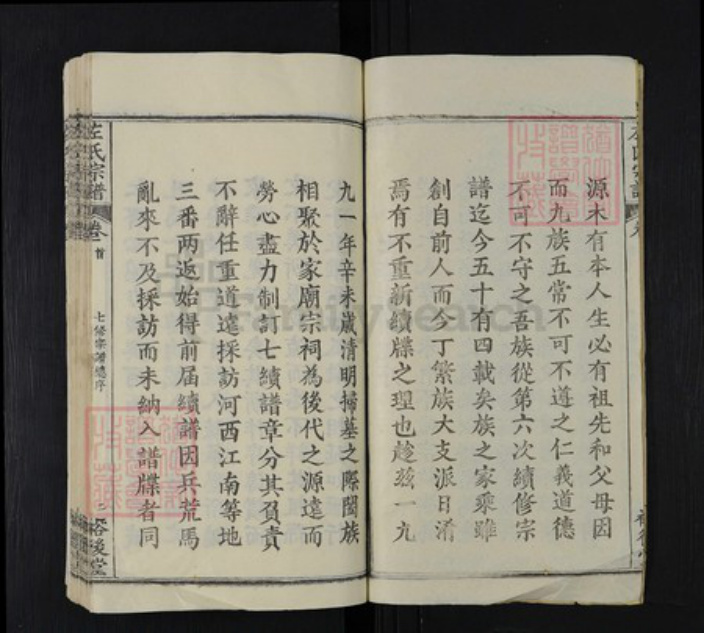 源木有本人生必有祖先和父母因
而九族五常不可不遵之仁義道德
不可不守之吾族從第六次續修宗
譜迄今五十有四載矣族之家乘雖
創自前人而今丁繁族大支派日淆
焉有不重新續牒之理也趁茲一九
九一年辛未歲清明掃墓之際闔族
相聚於家廟宗祠為後代之源遠而
勞心盡力制訂七續譜章分其負責
不辭任重道遠採訪河西江南等地
三番两返始得前届續譜因兵荒馬
亂來不及採訪而未納入譜牒者同
左氏宗譜
卷首
七修宗譜總序
裕後堂
FamilySearch